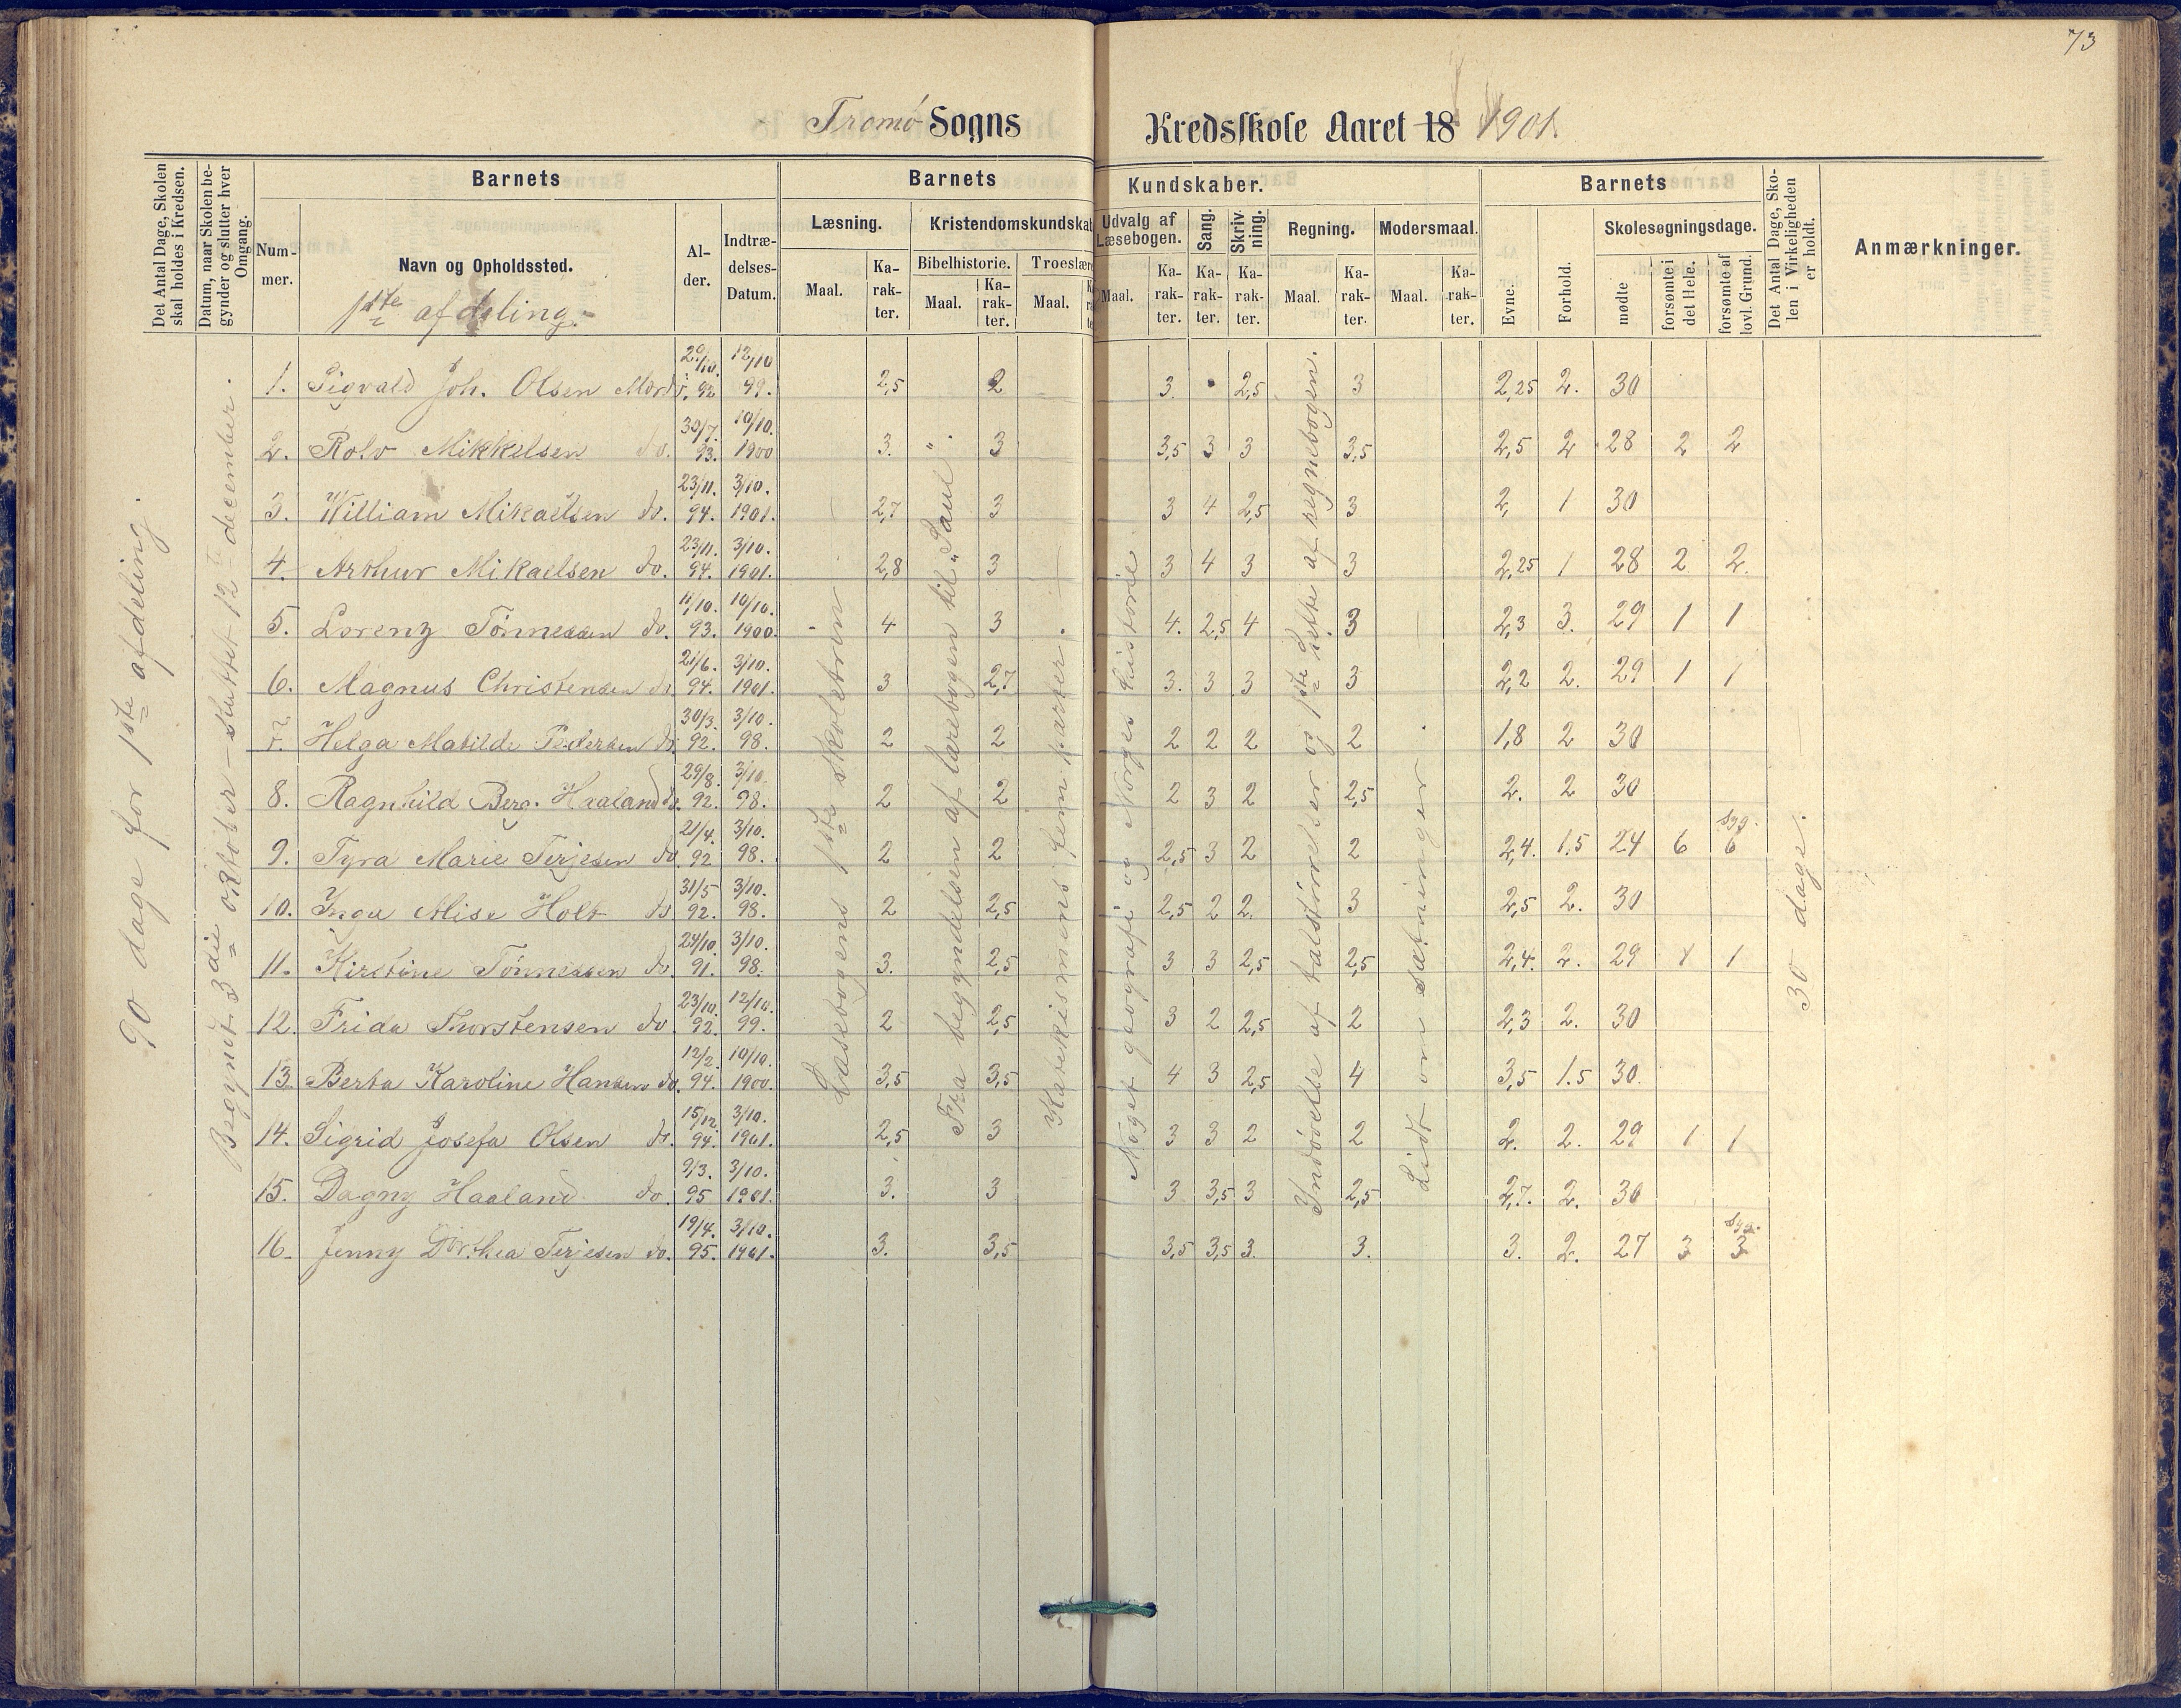 73
Tromø Sogns Kredsskole Aaret 18 1901.
Det Antal Dage, Skolen skal holdes i Kredsen.
Datum, naar Skolen begynder og slutter hver Omgang.
Barnets
Nummer.
Navn og Opholdssted.
1ste afdeling.
Alder.
Indtrædelses-Datum.
Barnets Kundskaber.
Læsning.
Maal. Karakter.
Kristendomskundskab
Bibelhistorie. Maal. Karakter.
Troeslære Maal.
Udvalg af Læsebogen. Maal. Karakter.
Sang. Karakter.
Skrivning. Karakter.
Regning. Maal. Karakter.
Modersmaal. Maal. Karakter.
Barnets
Evne. Forhold.
Skolesøgningsdage.
mødte forsømte i det Hele. forsømte af lovl. Grund.
Det Antal Dage, Skolen i Virkeligheden er holdt.
Anmærkninger.
90 dage for 1ste afdeling.
Begyndt 3die oktober – sluttet 12te december.
Læsebogens 1ste skoletrin
Fra begyndelsen af lærebogen til „Saul".
Katekismens fem parter.
Noget geografi og Norges historie
Indøvelse af talstørrelser og 1ste hefte af regnebogen.
Lidt om sætninger
30 dage.
1. Sigvald Joh. Olsen 29/10. 92 12/10 99. 2,5 2 3. 2,5 3 2,25 2. 30
2. Rolv Mikkelsen do. 30/7. 93. 10/10. 1900 3. 3 3,5 3 3 3,5 2,5 2 28 2 2
3. William Mikaelsen do. 23/11. 94. 3/10. 1901. 2,7 3 3 4 2,5 3 2, 1 30
4. Arthur Mikaelsen do. 23/11. 94. 3/10. 1901. 2,8 3 3 4 3 3 2,25 1 28 2 2.
5. Lorenz Tønnessen do. 11/10. 93. 10/10. 1900. 4 3 4. 2,5 4 3 2,3 3. 29 1 1
6. Magnus Christensen do. 21/6. 94. 3/10. 1901. 3 2,7 3. 3 3 3 2,2 2. 29 1 1
7. Helga Matilde Pedersen do. 30/3. 92. 3/10. 98. 2 2 2 2 2 2 1,8 2 30
8. Ragnhild Berg. Haaland do. 29/8. 92. 3/10. 98. 2 2 2 3 2 2,5 2. 2 30
9. Tyra Marie Terjesen do. 21/4. 92 3/10. 98. 2 2 2,5 3 2 2 2,4. 1.5 24 6 syg. 6
10. Inga Alise Holt do. 31/5 92. 3/10. 98. 2 2,5 2,5 2 2. 3 2,5 2. 30
11. Kirstine Tønnessen do. 24/10. 91. 3/10. 98. 3. 2,5 3 3 2,5 2,5 2,4. 2. 29 1 1
12. Frida Thorstensen do 23/10. 92. 12/10. 99. 2 2,5 3 2 2,5 2 2,3 2. 30
13. Berta Karoline Hansen do. 12/2. 94. 10/10. 1900. 3,5 3,5 4 3 2,5 4 3,5 1.5 30.
14. Sigrid Josefa Olsen do. 15/12. 94. 3/10. 1901. 2,5 3 3 3 2 2 2. 2. 29 1 1
15. Dagny Haaland do. 9/3. 95 3/10. 1901. 3. 3 3 3,5 3 2,5 2,7. 2. 30
16. Jenny Dorthea Terjesen do. 19/4. 95. 3/10. 1901. 3. 3,5 3,5 3,5 3. 3. 3. 2. 27 3 syg. 3